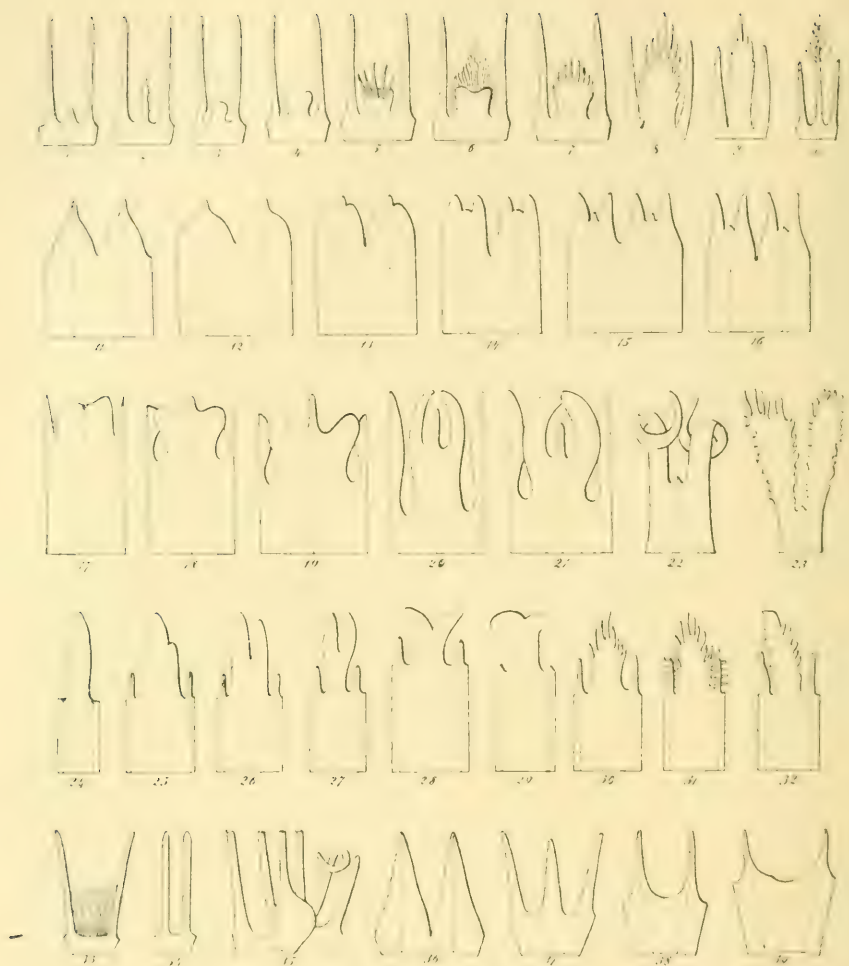 1 2 3 4 5 6 7 8 9 10
11 12 13 14 15 16
17 18 19 20 21 22 23
24 25 26 27 28 29 30 31 32
33 34 35 36 37 38 39